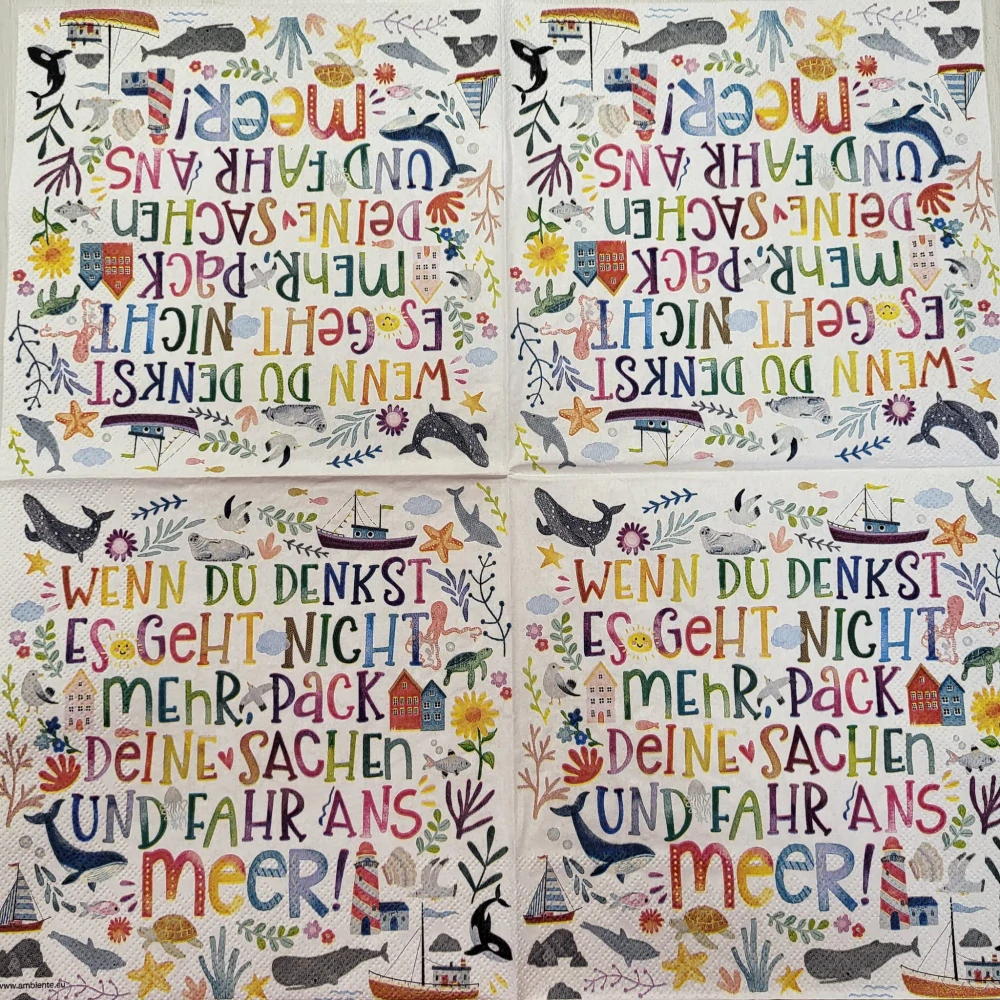 WENN DU DENKST
ES GEHT NICHT
MEHR, PACK
DEINE SACHEN
UND FAHR ANS
MEER!
WENN DU DENKST
ES GEHT NICHT
MEHR, PACK
DEINE SACHEN
UND FAHR ANS
MEER!
WENN DU DENKST
ES GEHT NICHT
MEHR, PACK
DEINE SACHEN
UND FAHR ANS
MEER!
WENN DU DENKST
ES GEHT NICHT
MEHR, PACK
DEINE SACHEN
UND FAHR ANS
MEER!
www.ambiente.eu